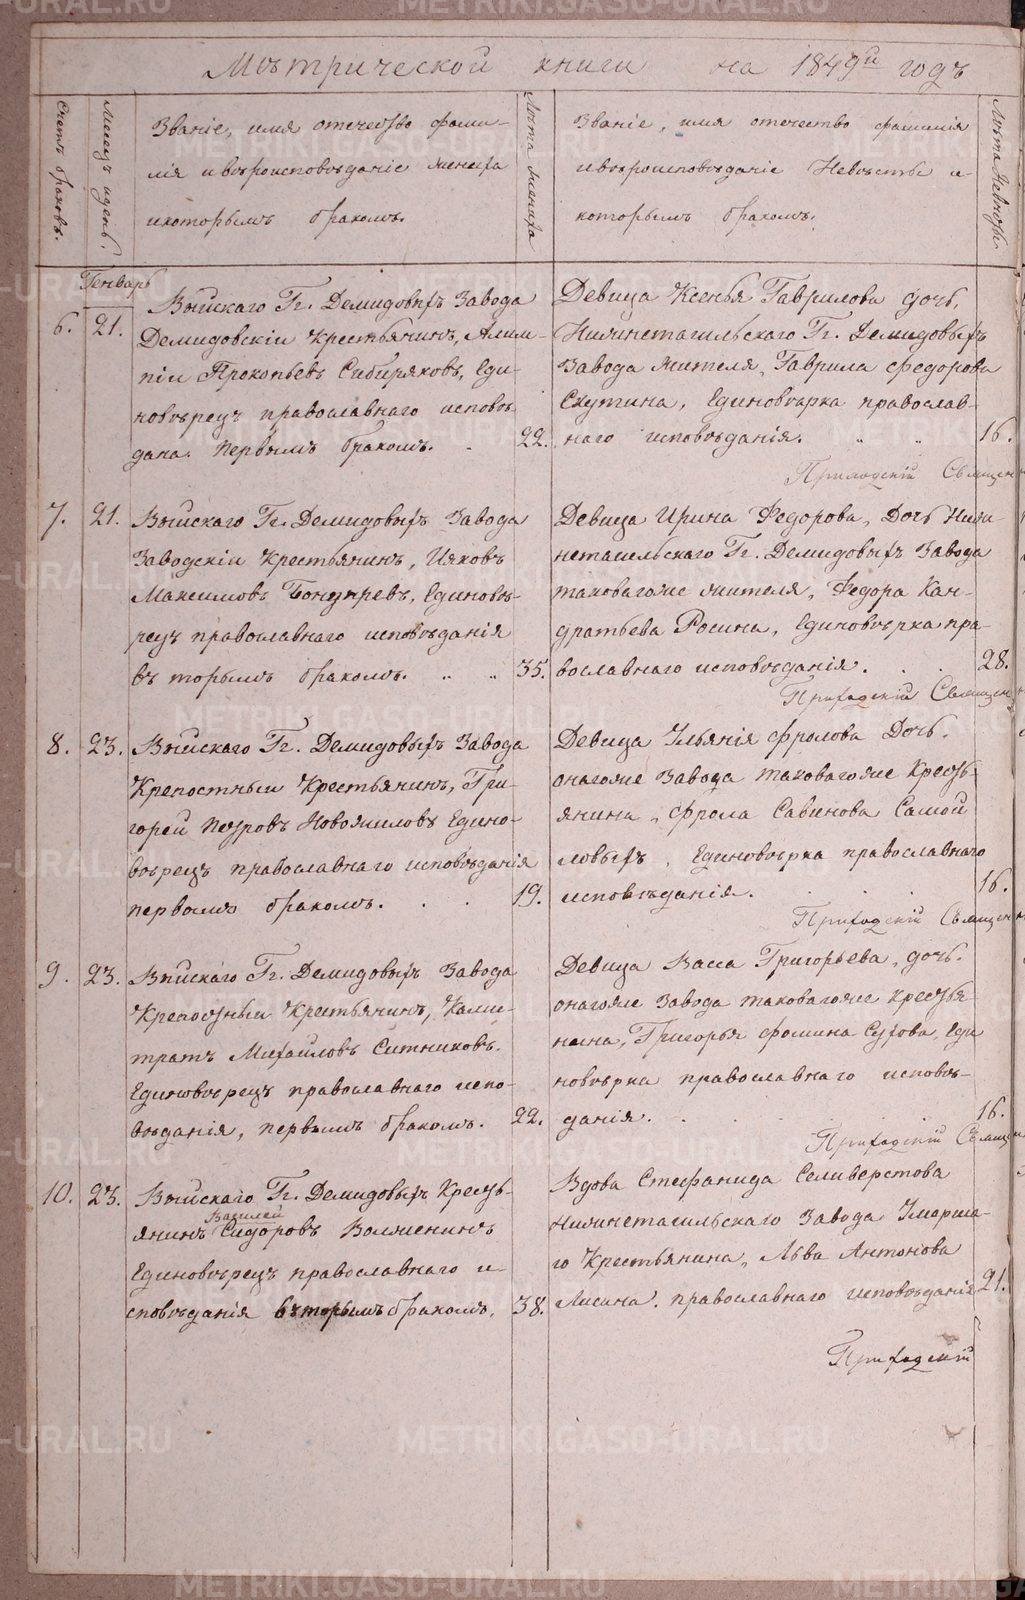 Метрической книги на 1849й годъ
Счетъ браковъ.
Месецъ идень.
Званіе, имя отечество фами-
лія ивѣроисповѣданіе жениха
икоторымъ бракомъ.
Лѣта жениха
Званіе, имя отечество фамилія
ивѣроисповѣданіе Невѣсты и
которымъ бракомъ.
Лѣта Невѣсты
Генварь
6. 21.
Выйскаго Гг. Демидовыхъ Завода
Демидовскіи крестьянинъ, Алим-
піи Прокопьевъ Сибиряковъ, Еди-
новѣрецъ православнаго исповѣ
дана. Первымъ бракомъ. 22.
Девица Ксенья Гаврилова дочь,
Нижнетагильскаго Гг. Демидовыхъ
Завода жителя, Гаврила федорова
Скутина, Единовѣрка православ-
наго исповѣданія. 16.
Приходскій Священ
7. 21.
Выйскаго Гг. Демидовыхъ Завода
Заводскіи крестьянинъ, Ияковъ
Максимовъ Единовѣ-
рецъ православнаго исповѣданія
въ торымъ бракомъ. 35.
Девица Ирина Федорова, Дочь Ниж
нетагильскаго Гг. Демидовыхъ Завода
таковагоже жителя, Федора Кан-
дратьева Росина, Единовѣрка пра-
вославнаго исповѣданія. 28.
Приходскій Священ
8. 23.
Выйскаго Гг. Демидовыхъ Завода
Крепостныи Крестьянинъ, Гри-
горей Петровъ Новожиловъ Едино-
вѣрецъ православнаго исповѣданія
первымъ бракомъ. 19.
Девица Ульянія фролова Дочь.
онагоже Завода таковагоже Кресть-
янина, фрола Савинова Самой
ловыхъ, Единовѣрка православнаго
исповѣданія. 16.
Приходскій Священ
9. 23.
Выйскаго Гг. Демидовыхъ Завода
Крепосныи Крестьянинъ, Кали-
тратъ Михайловъ Ситниковъ.
Единовѣрецъ православнаго испо-
вѣданія, первымъ бракомъ. 22.
Девица Васса Григорьева, дочь.
онагоже Завода таковагоже Кресть
нина, Григорья фомина Сухова, Еди
новѣрка православнаго исповѣ-
данія. 16.
Приходскій Священ
10. 23.
Выйскаго Гг. Демидовыхъ Кресть-
Василей
янинъ Сидоровъ Волженинъ
Единовѣрецъ православнаго и
сповѣданія вторымъ бракомъ, 38.
Вдова Стефанида Селиверстова
Нижнетагильскаго Завода Умерша-
го Крестьянина, Льва Антонова
Лисина. православнаго исповѣданія 21.
Приходскій
METRIKI.GASO-URAL.RU